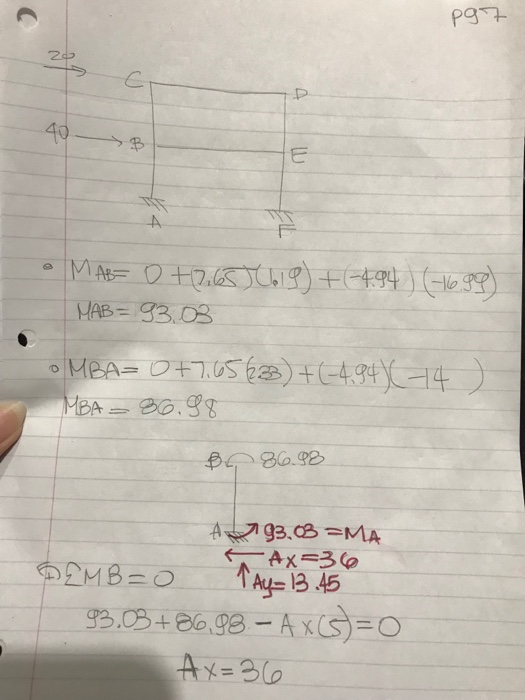 pg 7
20
C
D
40
B
E
A
F
MAB = 0 + (7.65)(1.19) + (-4.94)(-16.99)
MAB = 93.03
MBA = 0 + 7.65 (2.38) + (-4.94)(-14 )
MBA = 86.98
B 86.98
A 93.03 = MA
Ax = 36
Ay = 13.45
ΣMB = 0
93.03 + 86.98 - Ax(5) = 0
Ax = 36